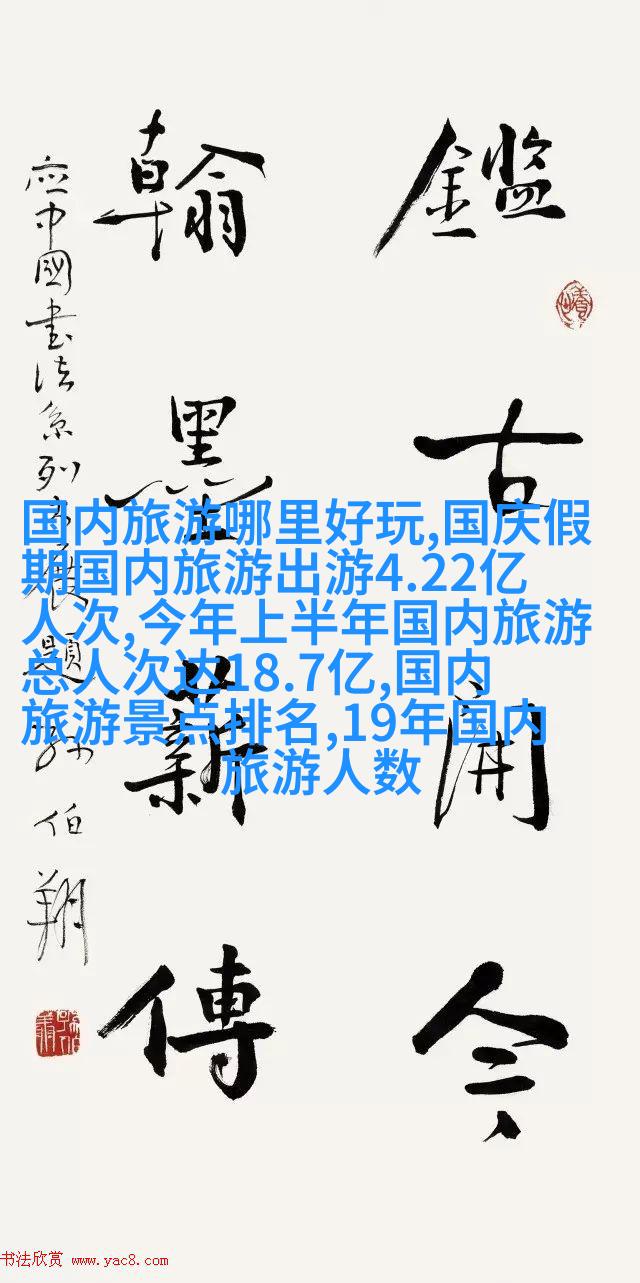 鑑古開今
翰墨薪傳
应中國書法系列展題 孙伯翔
国内旅游哪里好玩,国庆假
期国内旅游出游4.22亿
人次,今年上半年国内旅游
总人次达18.7亿,国内
旅游景点排名,19年国内
旅游人数
书法欣赏 www.yac8.com